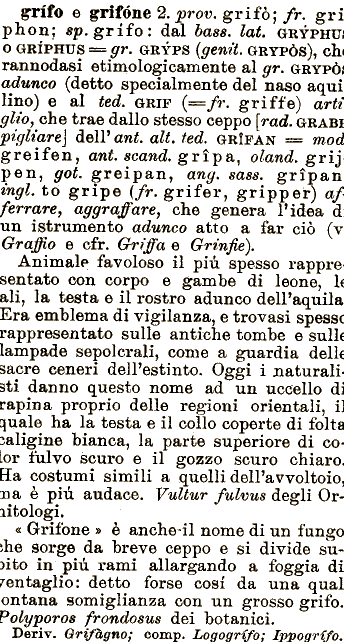 grífo e grifóne 2. prov. grifò; fr. gri
phon; sp. grifo: dal bass. lat. GRYPHUS
O GRÍPHUS = gr. GRÝPS (genit. GRYPÒS), che
rannodasi etimologicamente al gr. GRYPÒS
adunco (detto specialmente del naso aqui
lino) e al ted. GRIF (= fr. griffe) arti
glio, che trae dallo stesso ceppo [rad. GRABH
pigliare] dell' ant. alt. ted. GRÎFAN = mod
greifen, ant. scand. grîpa, oland. grij
pen, got. greipan, ang. sass. grîpan
ingl. to gripe (fr. grifer, gripper) af-
ferrare, aggraffare, che genera l'idea d
un istrumento adunco atto a far ciò (v
Graffio e cfr. Griffa e Grinfie).
Animale favoloso il piú spesso rappre-
sentato con corpo e gambe di leone, le
ali, la testa e il rostro adunco dell'aquila
Era emblema di vigilanza, e trovasi spesso
rappresentato sulle antiche tombe e sulle
lampade sepolcrali, come a guardia delle
sacre ceneri dell'estinto. Oggi i naturali-
sti danno questo nome ad un uccello di
rapina proprio delle regioni orientali, il
quale ha la testa e il collo coperte di folta
caligine bianca, la parte superiore di co-
lor fulvo scuro e il gozzo scuro chiaro.
Ha costumi simili a quelli dell'avvoltoio,
ma è piú audace. Vultur fulvus degli Or-
nitologi.
« Grifone » è anche il nome di un fungo
che sorge da breve ceppo e si divide su-
bito in piú rami allargando a foggia di
ventaglio: detto forse cosí da una qual
lontana somiglianza con un grosso grifo.
Polyporos frondosus dei botanici.
Deriv. Grifàgno; comp. Logogrífo; Ippogrífo.